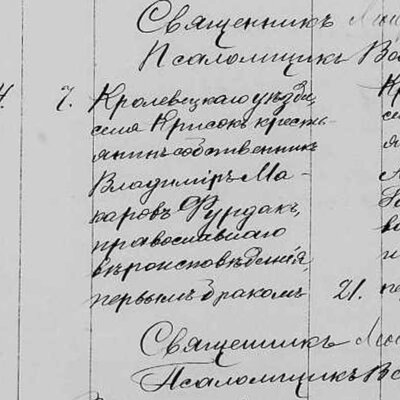 Священникъ
Псаломщикъ
4. 7. Кролевецкаго уѣзда,
села Крисокъ кресть-
янинъ собственникъ
Владиміръ Ма-
каровъ Фурдакъ,
православнаго
вѣроисповѣданія,
первымъ бракомъ 21.
Священникъ
Псаломщикъ